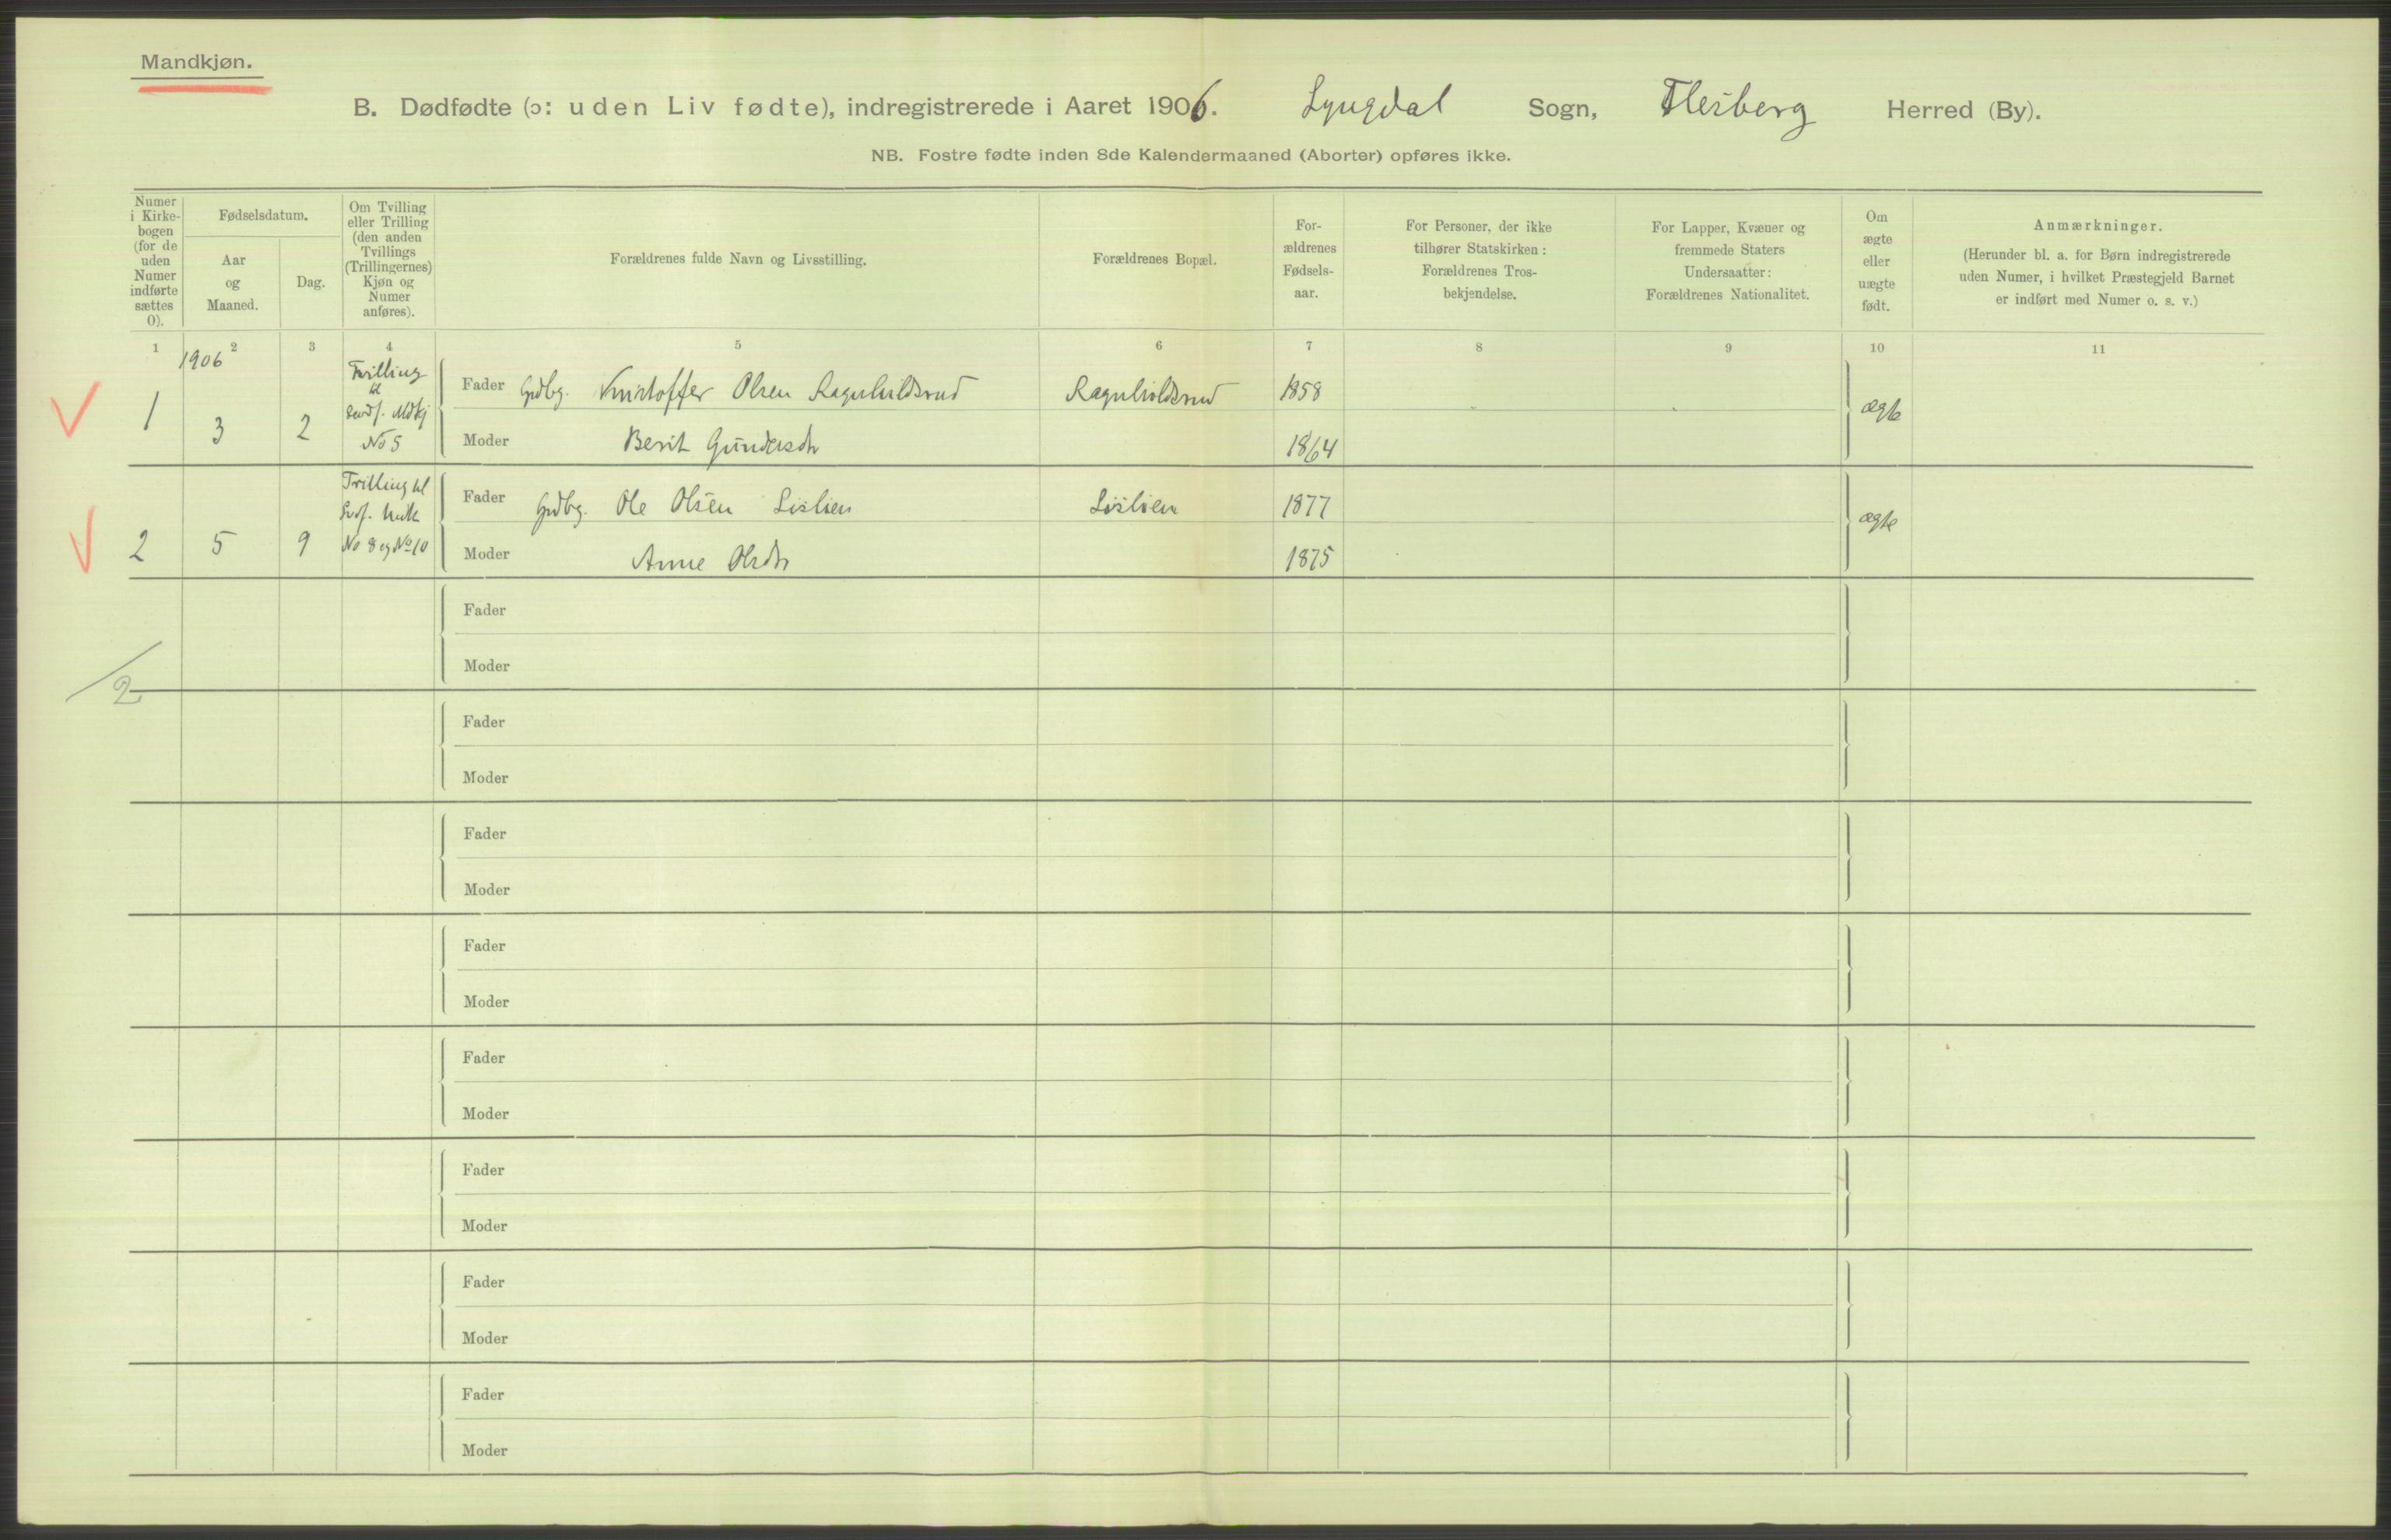 Mandkjøn.
B. Dødfødte (ɔ: uden Liv fødte), indregistrerede i Aaret 1906. Lyngdal Sogn, Flesberg Herred (By).
NB. Fostre fødte inden 8de Kalendermaaned (Aborter) opføres ikke.
Numer
i Kirke-
bogen
(for de
uden
Numer
indførte
sættes
0).
Fødselsdatum.
Aar
og
Maaned.
Dag.
Om Tvilling
eller Trilling
(den anden
Tvillings
(Trillingernes)
Kjøn og
Numer
anføres).
Forældrenes fulde Navn og Livsstilling.
Forældrenes Bopæl.
For-
ældrenes
Fødsels-
aar.
For Personer, der ikke
tilhører Statskirken:
Forældrenes Tros-
bekjendelse.
For Lapper, Kvæner og
fremmede Staters
Undersaatter:
Forældrenes Nationalitet.
Om
ægte
eller
uægte
født.
Anmærkninger.
(Herunder bl. a. for Børn indregistrerede
uden Numer, i hvilket Præstegjeld Barnet
er indført med Numer o. s. v.)
1 2 3 4 5 6 7 8 9 10 11
1906
1 3 2
Tvilling
til
levdf. Mdkj
No 5
Fader Gdbg. Kristoffer Olsen Ragnhildsrud Ragnhildsrud 1858 ægte
Moder Berit Gundersdtr 1864
2 5 9
Trilling til
No 8 og No 10
Fader Gdbg. Ole Olsen Lislien Lislien 1877 ægte
Moder Anne Olsdtr 1875
Fader
Moder
2
Fader
Moder
Fader
Moder
Fader
Moder
Fader
Moder
Fader
Moder
Fader
Moder
Fader
Moder